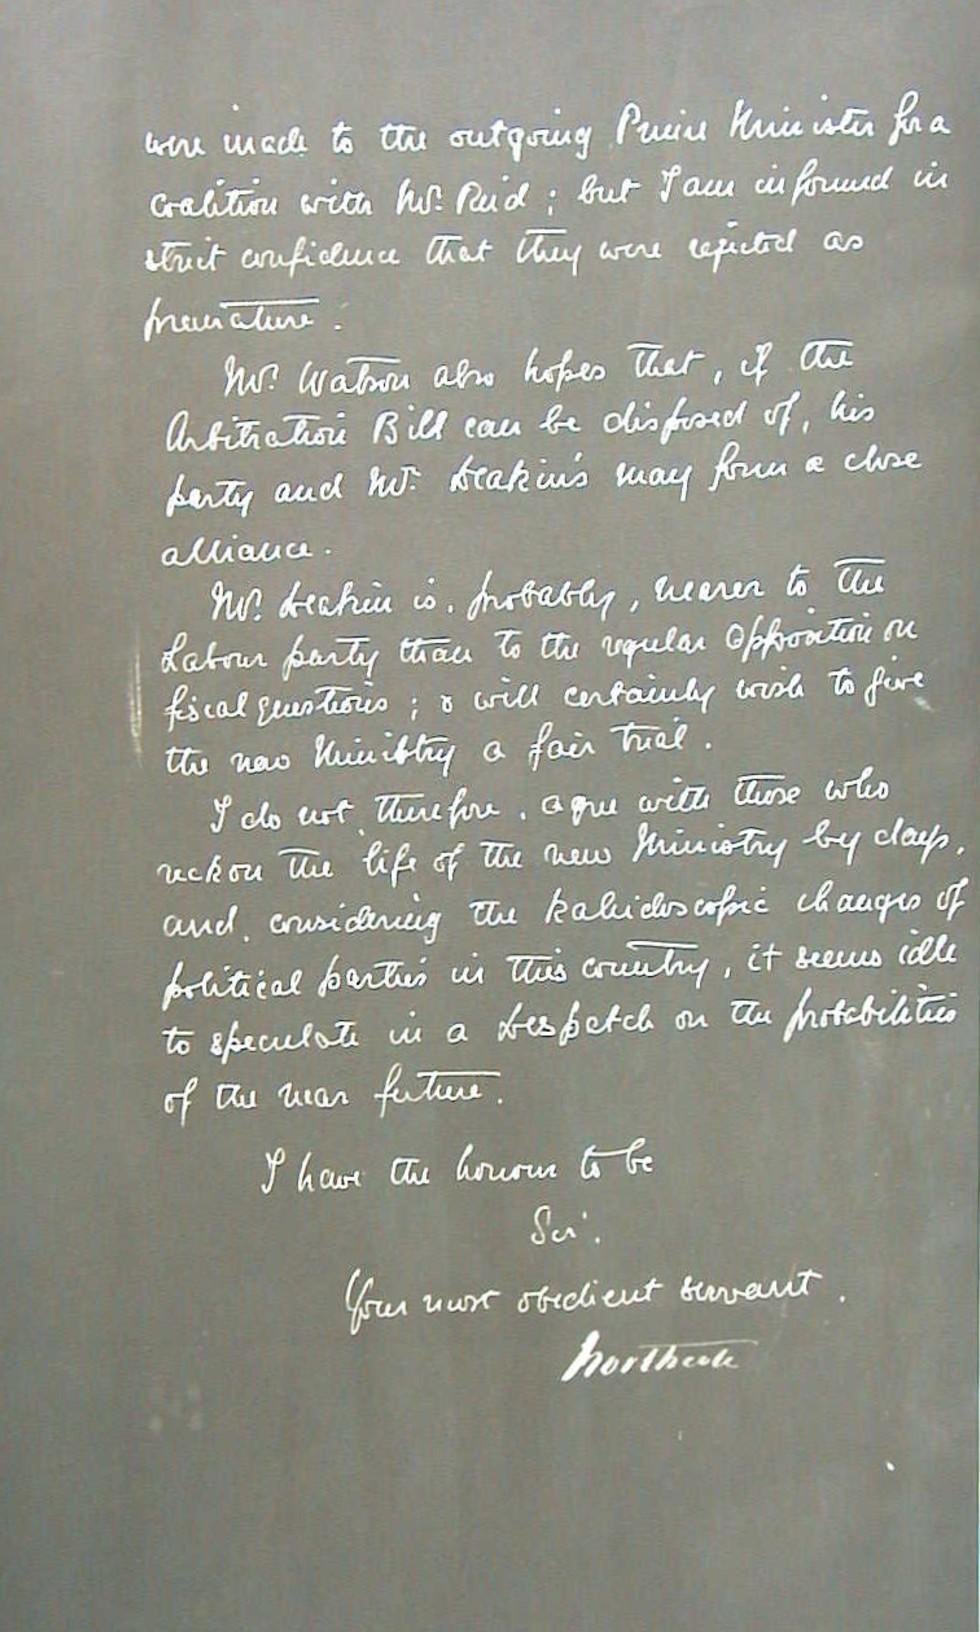 were made to the outgoing Prime Minister for a
coalition with Mr. Reid; but I am informed in
strict confidence that they were rejected as
premature.
Mr. Watson also hopes that, if the
Arbitration Bill can be disposed of, his
party and Mr. Deakin's may form a close
alliance.
Mr. Deakin is, probably, nearer to the
Labour party than to the regular Opposition on
fiscal questions; & will certainly wish to give
the new Ministry a fair trial.
I do not, therefore, agree with those who
reckon the life of the new Ministry by days,
and, considering the kaleidoscopic changes of
political parties in this country, it seems idle
to speculate in a Despatch on the probabilities
of the near future.
I have the honour to be
Sir.
Your most obedient servant.
Northcote